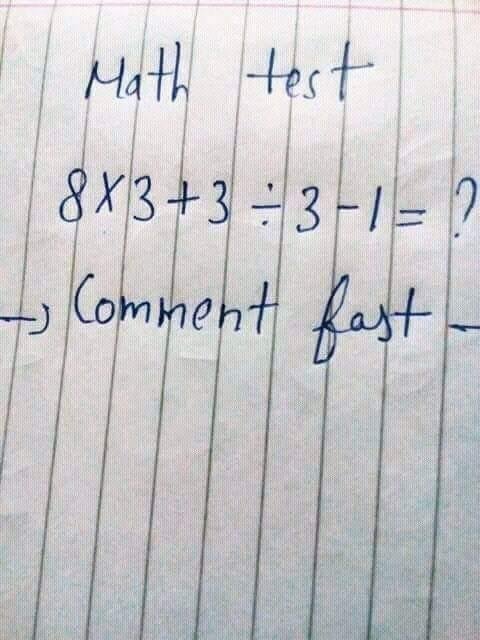 Math test
8X3+3÷3-1=?
→ Comment fast -